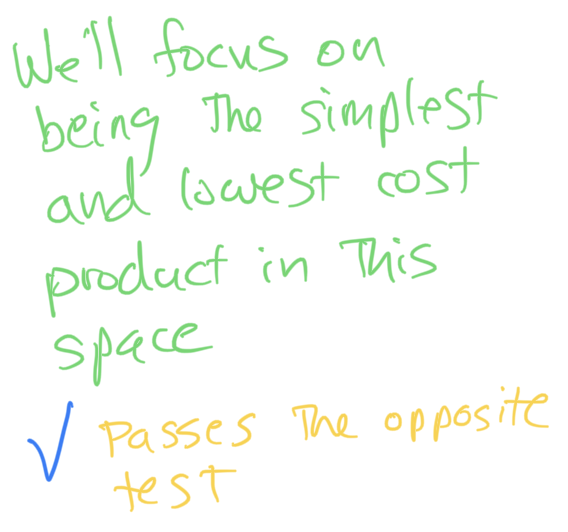 We'll focus on
being The simplest
and lowest cost
product in This
space
✓ Passes The opposite
test